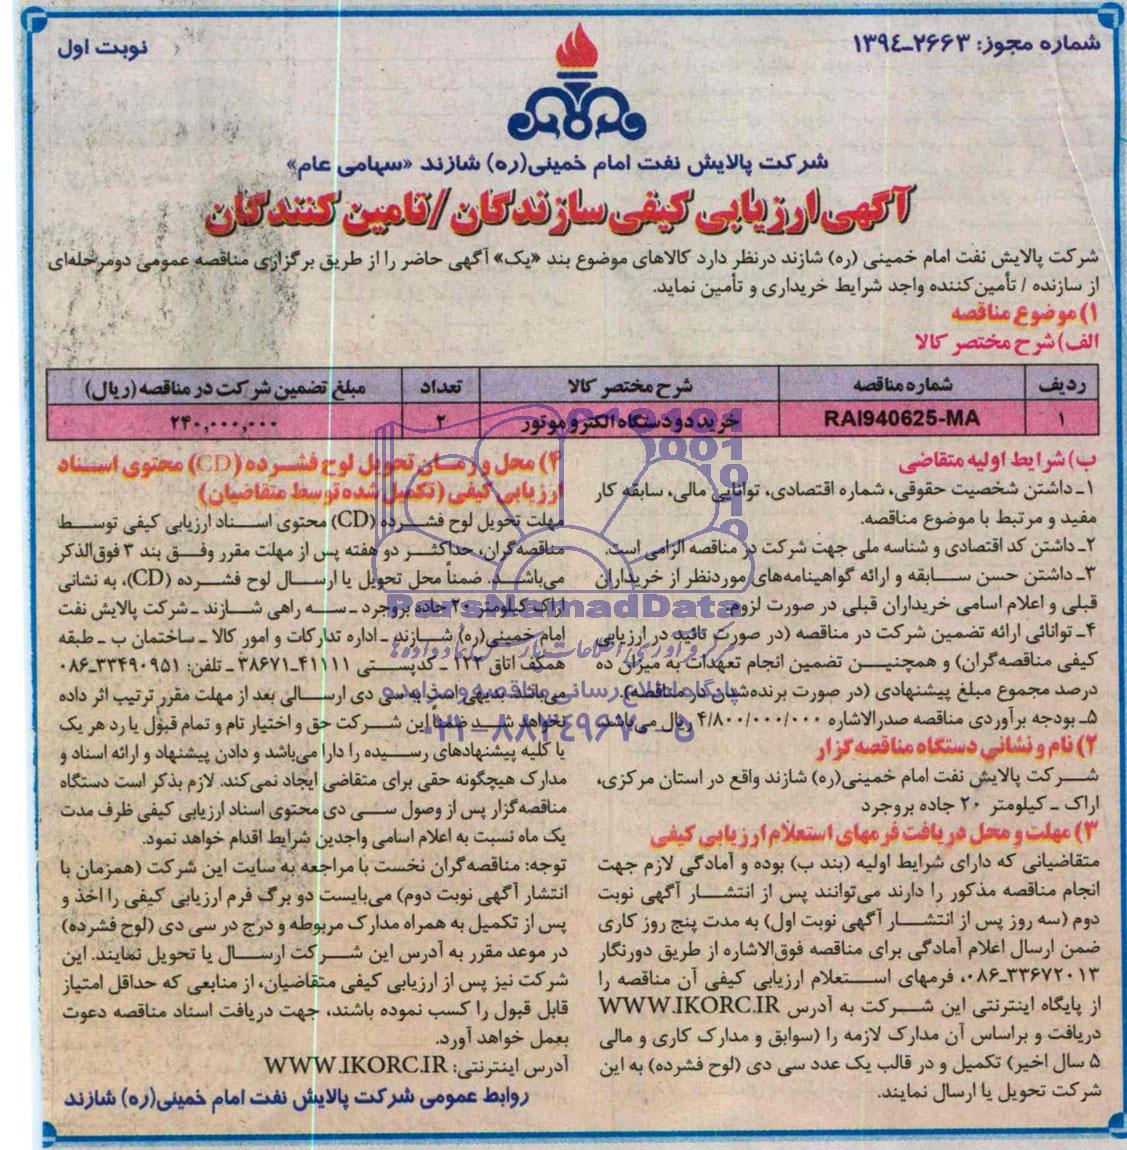 شماره مجوز: ۲۶۶۳-۱۳۹٤
نوبت اول
شرکت پالایش نفت امام خمینی(ره) شازند «سهامی عام»
آگهی ارزیابی کیفی سازندگان/تامین کنندگان
شرکت پالایش نفت امام خمینی (ره) شازند درنظر دارد کالاهای موضوع بند «یک» آگهی حاضر را از طریق برگزاری مناقصه عمومی دومرحله‌ای
از سازنده / تأمین‌کننده واجد شرایط خریداری و تأمین نماید.
۱) موضوع مناقصه
الف) شرح مختصر کالا
ردیف شماره مناقصه شرح مختصر کالا تعداد مبلغ تضمین شرکت در مناقصه (ریال)
۱ RAI940625-MA خرید دو دستگاه الکترو موتور ۲ ۲۴۰,۰۰۰,۰۰۰
ب) شرایط اولیه متقاضی
۱ـ داشتن شخصیت حقوقی، شماره اقتصادی، توانایی مالی، سابقه کار
مفید و مرتبط با موضوع مناقصه.
۲ـ داشتن کد اقتصادی و شناسه ملی جهت شرکت در مناقصه الزامی است.
۳ـ داشتن حسن سابقه و ارائه گواهینامه‌های موردنظر از خریداران
قبلی و اعلام اسامی خریداران قبلی در صورت لزوم.
۴ـ توانائی ارائه تضمین شرکت در مناقصه (در صورت تائید در ارزیابی
کیفی مناقصه‌گران) و همچنین تضمین انجام تعهدات به میزان ده
درصد مجموع مبلغ پیشنهادی (در صورت برنده‌شدن در مناقصه).
۵ـ بودجه برآوردی مناقصه صدرالاشاره ۴/۸۰۰/۰۰۰/۰۰۰ ریال می‌باشد.
۲) نام و نشانی دستگاه مناقصه‌گزار
شرکت پالایش نفت امام خمینی(ره) شازند واقع در استان مرکزی،
اراک ـ کیلومتر ۲۰ جاده بروجرد
۳) مهلت و محل دریافت فرمهای استعلام ارزیابی کیفی
متقاضیانی که دارای شرایط اولیه (بند ب) بوده و آمادگی لازم جهت
انجام مناقصه مذکور را دارند می‌توانند پس از انتشار آگهی نوبت
دوم (سه روز پس از انتشار آگهی نوبت اول) به مدت پنج روز کاری
ضمن ارسال اعلام آمادگی برای مناقصه فوق‌الاشاره از طریق دورنگار
۳۳۶۷۲۰۱۳-۰۸۶، فرمهای استعلام ارزیابی کیفی آن مناقصه را
از پایگاه اینترنتی این شرکت به آدرس WWW.IKORC.IR
دریافت و براساس آن مدارک لازمه را (سوابق و مدارک کاری و مالی
۵ سال اخیر) تکمیل و در قالب یک عدد سی دی (لوح فشرده) به این
شرکت تحویل یا ارسال نمایند.
۴) محل و زمان تحویل لوح فشرده (CD) محتوی اسناد
ارزیابی کیفی (تکمیل شده توسط متقاضیان)
مهلت تحویل لوح فشرده (CD) محتوی اسناد ارزیابی کیفی توسط
مناقصه‌گران، حداکثر دو هفته پس از مهلت مقرر وفق بند ۳ فوق‌الذکر
می‌باشد. ضمناً محل تحویل یا ارسال لوح فشرده (CD)، به نشانی
اراک کیلومتر ۲۰ جاده بروجرد ـ سه راهی شازند ـ شرکت پالایش نفت
امام خمینی(ره) شازند ـ اداره تدارکات و امور کالا ـ ساختمان ب ـ طبقه
همکف اتاق ۱۲۲ ـ کدپستی ۴۱۱۱۱-۳۸۶۷۱ ـ تلفن: ۳۳۴۹۰۹۵۱-۰۸۶
می‌باشد. بدیهی است به سی دی ارسالی بعد از مهلت مقرر ترتیب اثر داده
نخواهد شد ضمناً این شرکت حق و اختیار تام و تمام قبول یا رد هر یک
یا کلیه پیشنهادهای رسیده را دارا می‌باشد و دادن پیشنهاد و ارائه اسناد و
مدارک هیچگونه حقی برای متقاضی ایجاد نمی‌کند. لازم بذکر است دستگاه
مناقصه‌گزار پس از وصول سی دی محتوی اسناد ارزیابی کیفی ظرف مدت
یک ماه نسبت به اعلام اسامی واجدین شرایط اقدام خواهد نمود.
توجه: مناقصه‌گران نخست با مراجعه به سایت این شرکت (همزمان با
انتشار آگهی نوبت دوم) می‌بایست دو برگ فرم ارزیابی کیفی را اخذ و
پس از تکمیل به همراه مدارک مربوطه و درج در سی دی (لوح فشرده)
در موعد مقرر به آدرس این شرکت ارسال یا تحویل نمایند. این
شرکت نیز پس از ارزیابی کیفی متقاضیان، از منابعی که حداقل امتیاز
قابل قبول را کسب نموده باشند، جهت دریافت اسناد مناقصه دعوت
بعمل خواهد آورد.
آدرس اینترنتی: WWW.IKORC.IR
روابط عمومی شرکت پالایش نفت امام خمینی(ره) شازند
ParsNamadData
پایگاه اطلاع رسانی مناقصه و مزایده
۰۲۱-۸۸۳۴۹۶۷۰-۵